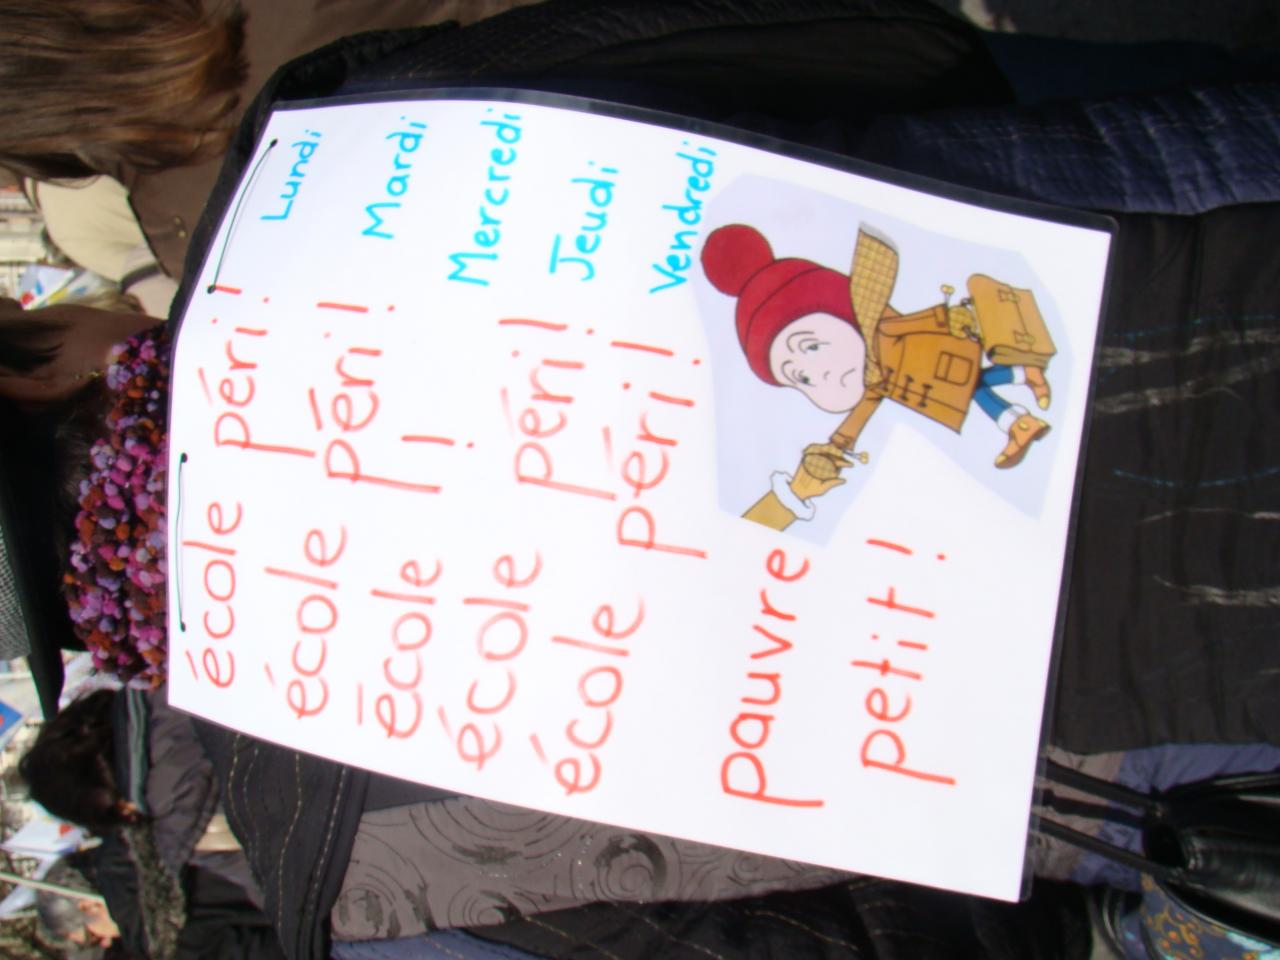 école péri! Lundi
école péri! Mardi
école ! Mercredi
école péri! Jeudi
école péri! Vendredi
pauvre
petit!